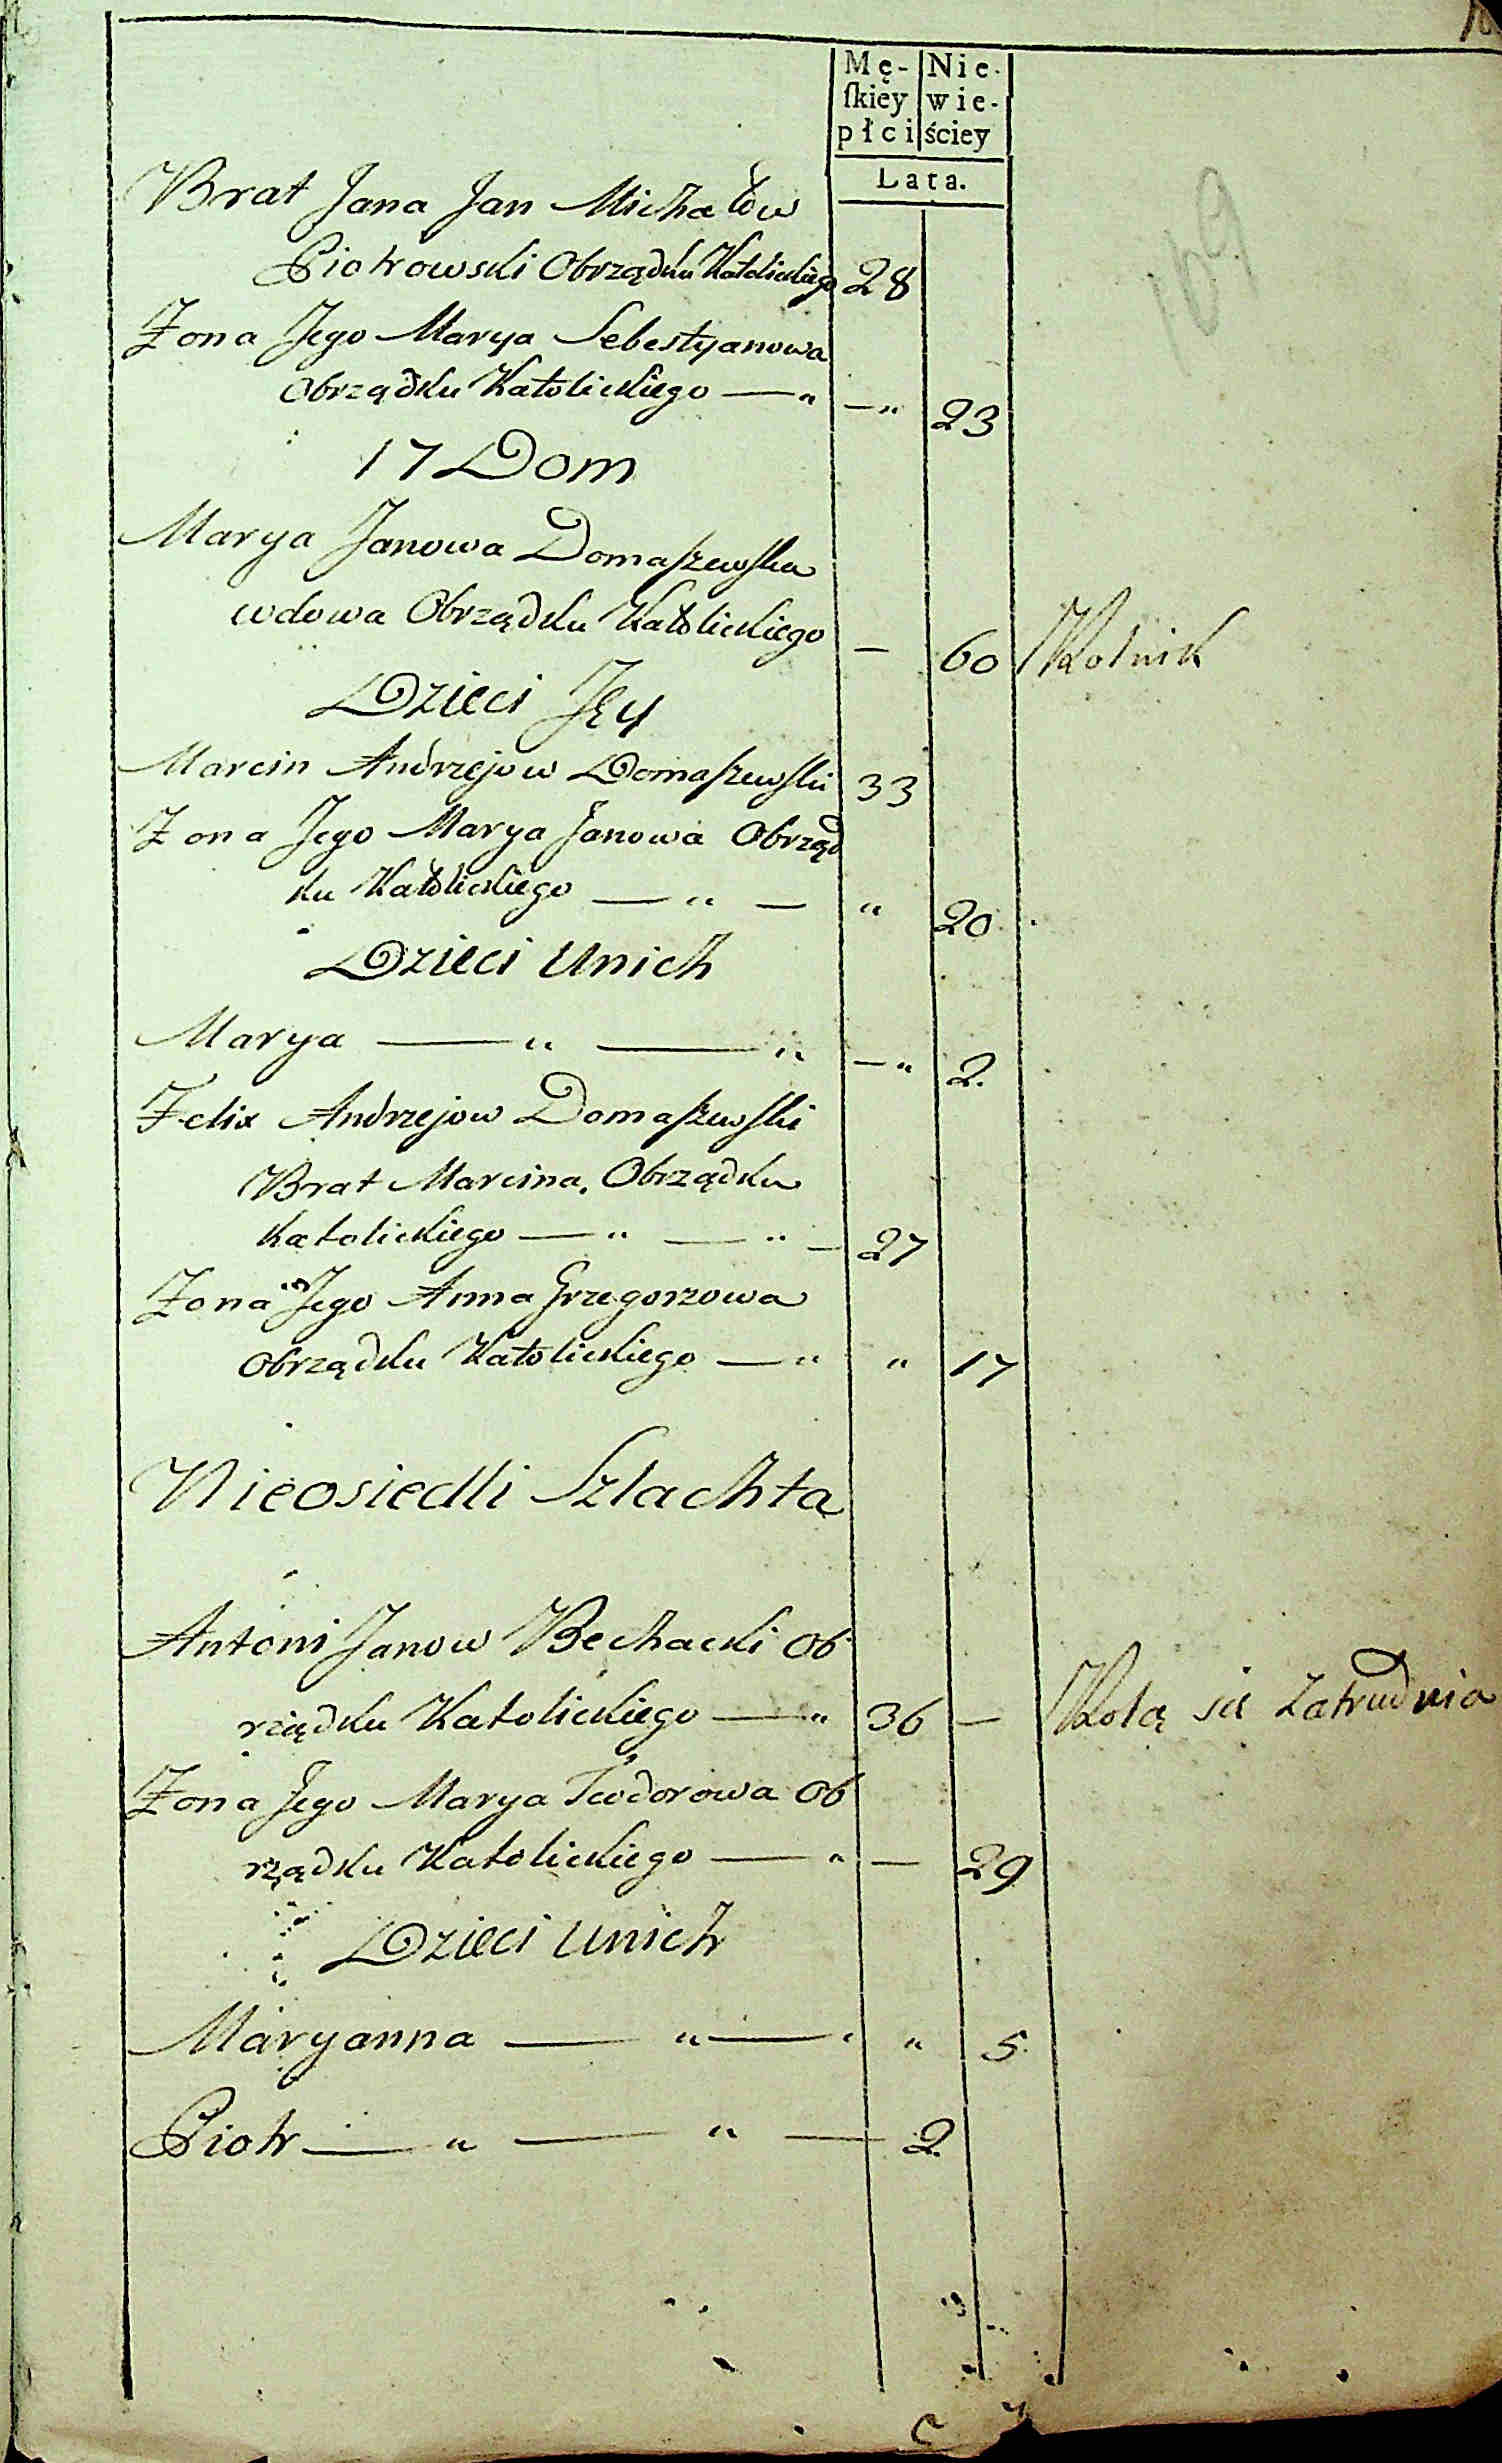 Mę- Nie-
ſkiey wie-
płci ściey
Lata.
169
Brat Jana Jan Michałow
Piotrowski Obrządku Katolickiego 28
Zona Jego Marya Sebestyanowa
Obrządku Katolickiego — " — " 23
17 Dom
Marya Janowa Domaszewska
wdowa Obrządku Katolickiego — 60 Rolnik
Dzieci Jęy
Marcin Andrzejow Domaszewski 33
Zona Jego Marya Janowa Obrząd
ku Katolickiego — " — " 20
Dzieci Unich
Marya — " — " — " 2.
Felix Andrzejow Domaszewski
Brat Marcina. Obrządku
Katolickiego — " — " — 27
Zona Jego Anna Grzegorzowa
Obrządku Katolickiego — " " 17
Nieosiedli Szlachta
Antoni Janow Bechacki Ob
rządku Katolickiego — " 36 — Rolą sie Zatrudnia
Zona Jego Marya Teodorowa Ob
rządku Katolickiego — " — 29
Dzieci Unich
Maryanna — " — " " 5.
Piotr — " — " — 2.